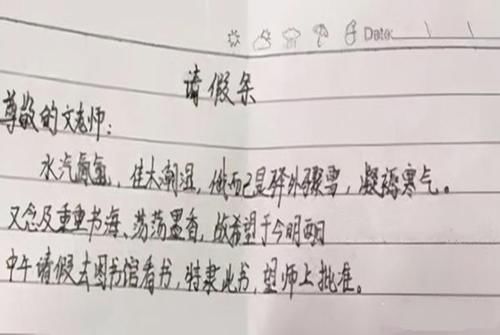 Date:
请假条
尊敬的文老师：
水汽氤氲，佳大潮湿，俄而已是驿外骤雪，凝寒气。
又念及重重书海、荡荡墨香，故希望于今明两日
中午请假去图书馆看书，特隶此书，望师上批准。